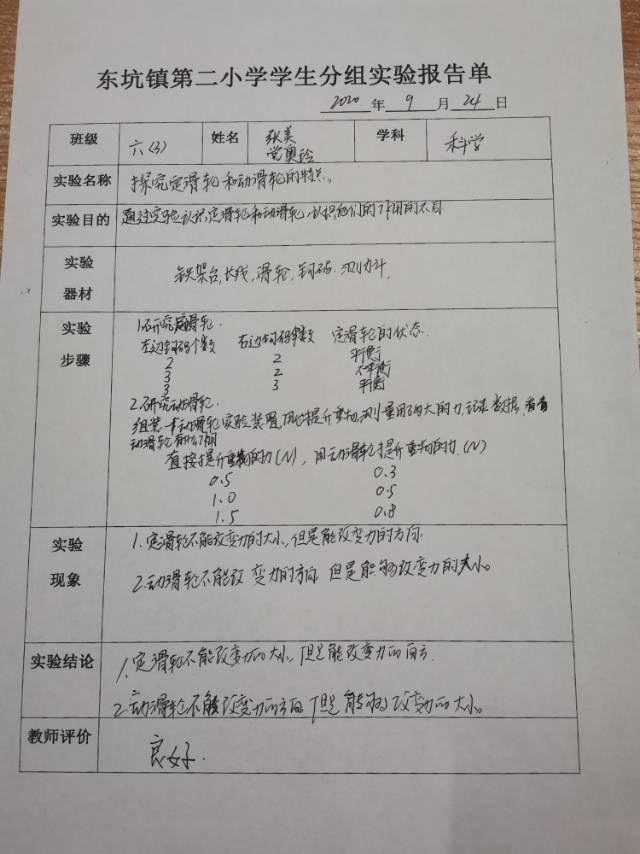 东坑镇第二小学学生分组实验报告单
2020 年 9 月 24 日
班级 六(3) 姓名 张美 学科 科学
实验名称 探究定滑轮和动滑轮的特点。
实验目的 通过实验认识定滑轮和动滑轮,认识他们的作用的不同
实验器材 铁架台,长线,滑轮,钩码.测力计.
实验步骤
1.研究定滑轮.
左边钩码个数 右边钩码个数 定滑轮的状态.
2 2 平衡
3 2 不平衡
3 3 平衡
2.研究动滑轮.
组装一个动滑轮实验装置,用它提升重物,测量用了多大的力,记录数据,看看
动滑轮有什么作用
直接提升重物的力(N), 用动滑轮提升重物的力.(N)
0.5 0.3
1.0 0.5
1.5 0.8
实验现象
1.定滑轮不能改变力的大小,但是能改变力的方向.
2.动滑轮不能改变力的方向 但是能够改变力的大小。
实验结论
1.定滑轮不能改变力的大小,但是能改变力的方向.
2.动滑轮不能改变力的方向 但是能够改变力的大小。
教师评价 良好.